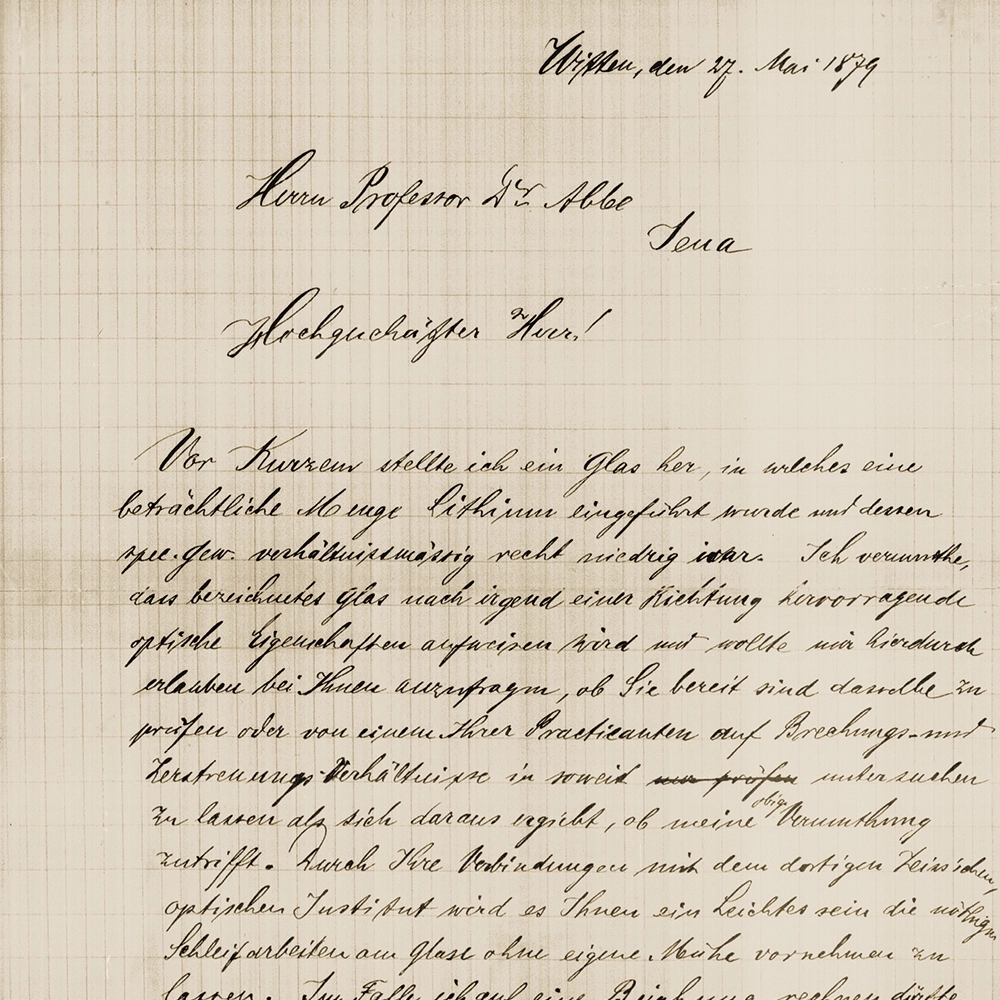 Witten, den 27. Mai 1879
Herrn Professor Dr Abbe
Jena
Hochgeschätzter Herr!
Vor Kurzem stellte ich ein Glas her, in welches eine
beträchtliche Menge Lithium eingeführt wurde und dessen
spec. Gew. verhältnissmässig recht niedrig war. Ich vermuthe,
dass bezeichnetes Glas nach irgend einer Richtung hervorragende
optische Eigenschaften aufweisen wird und wollte mir hierdurch
erlauben bei Ihnen anzufragen, ob Sie bereit sind dasselbe zu
prüfen oder von einem Ihrer Practicanten auf Brechungs- und
Zerstreuungs-Verhältnisse in soweit nur prüfen untersuchen
zu lassen als sich daraus ergiebt, ob meine obige Vermuthung
zutrifft. Durch Ihre Verbindungen mit dem dortigen Zeiss'schen,
optischen Institut wird es Ihnen ein Leichtes sein die nöthigen
Schleifarbeiten am Glase ohne eigene Mühe vornehmen zu
lassen. Im Falle ich auf eine rechnen dürfte